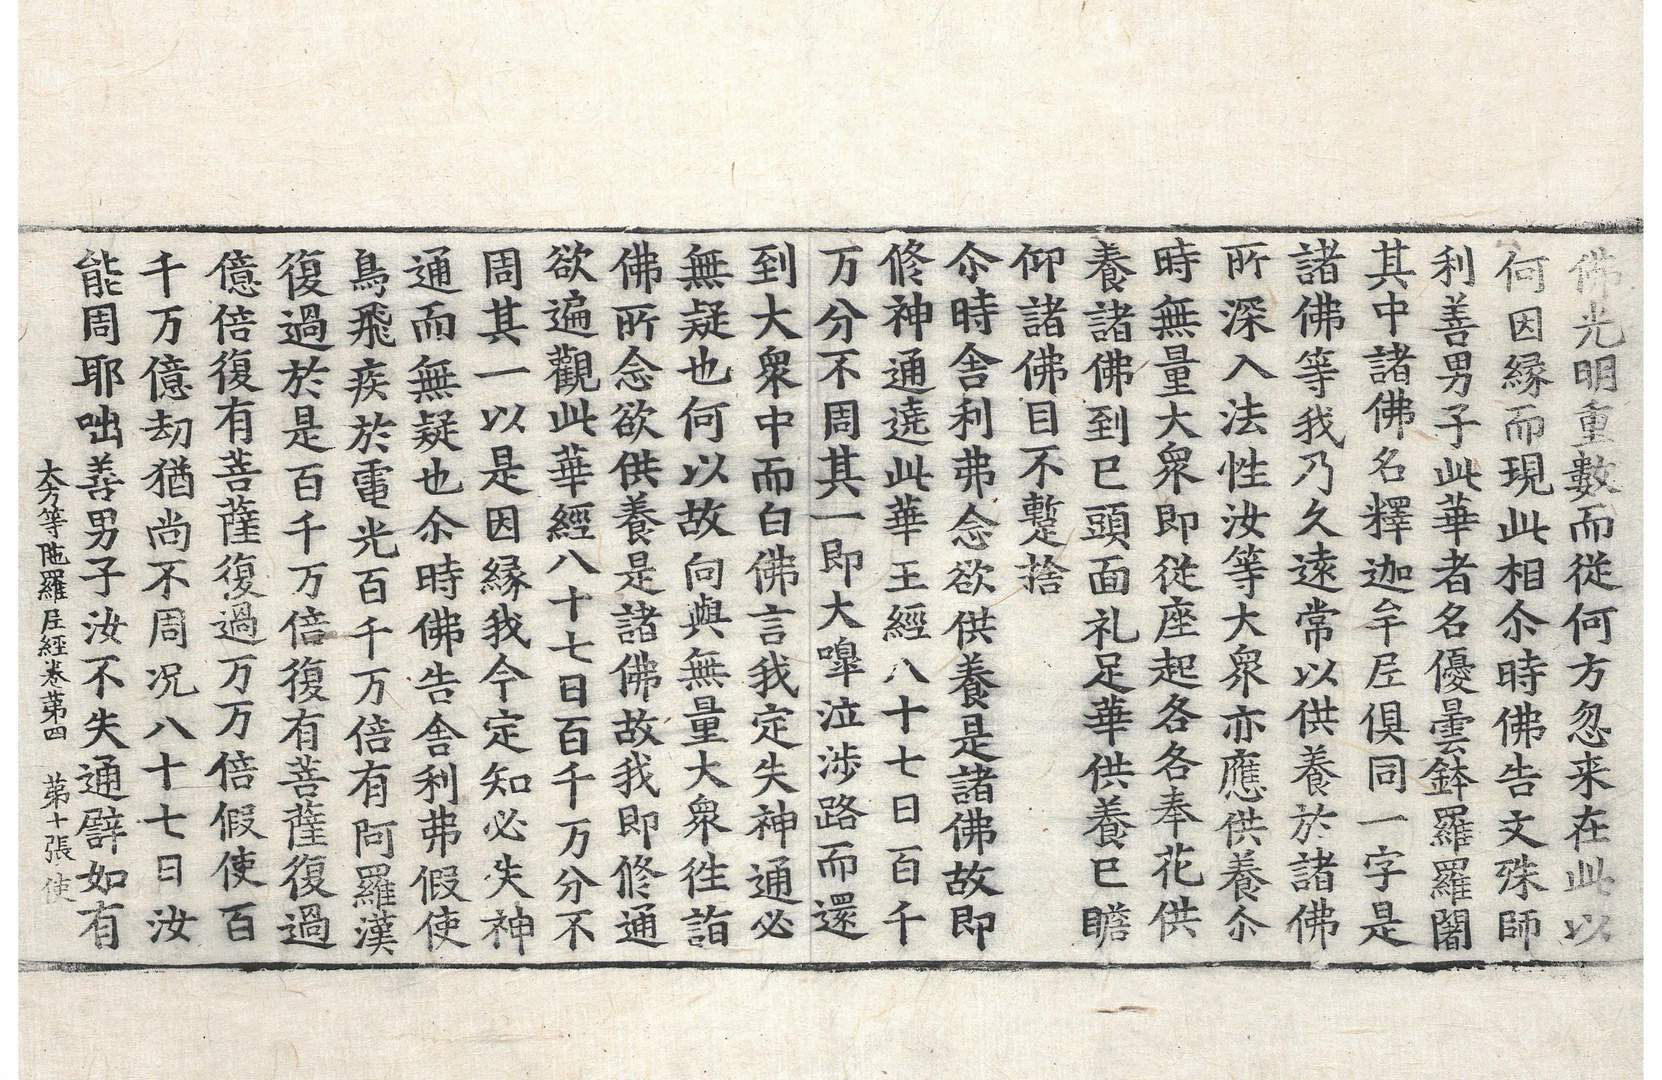 佛光明重數而従何方忽来在此以
何因縁而現此相尒時佛告文殊師
利善男子此華者名優曇鉢羅羅闍
其中諸佛名釋迦牟𡰱俱同一字是
諸佛等我乃久遠常以供養於諸佛
所深入法性汝等大衆亦應供養尒
時無量大衆即従座起各各奉花供
養諸佛到已頭面礼足華供養已瞻
仰諸佛目不暫捨
尒時舎利弗念欲供養是諸佛故即
修神通遶此華王經八十七日百千
万分不周其一即大嘷泣渉路而還
到大衆中而白佛言我定失神通必
無疑也何以故向與無量大衆徃詣
佛所念欲供養是諸佛故我即修通
欲遍觀此華經八十七日百千万分不
周其一以是因縁我今定知必失神
通而無疑也尒時佛告舎利弗假使
鳥飛疾於電光百千万倍有阿羅漢
復過於是百千万倍復有菩薩復過
億倍復有菩薩復過万万倍假使百
千万億劫猶尚不周况八十七日汝
能周耶咄善男子汝不失通譬如有
大方等陁羅𡰱經卷第四　第十張　使